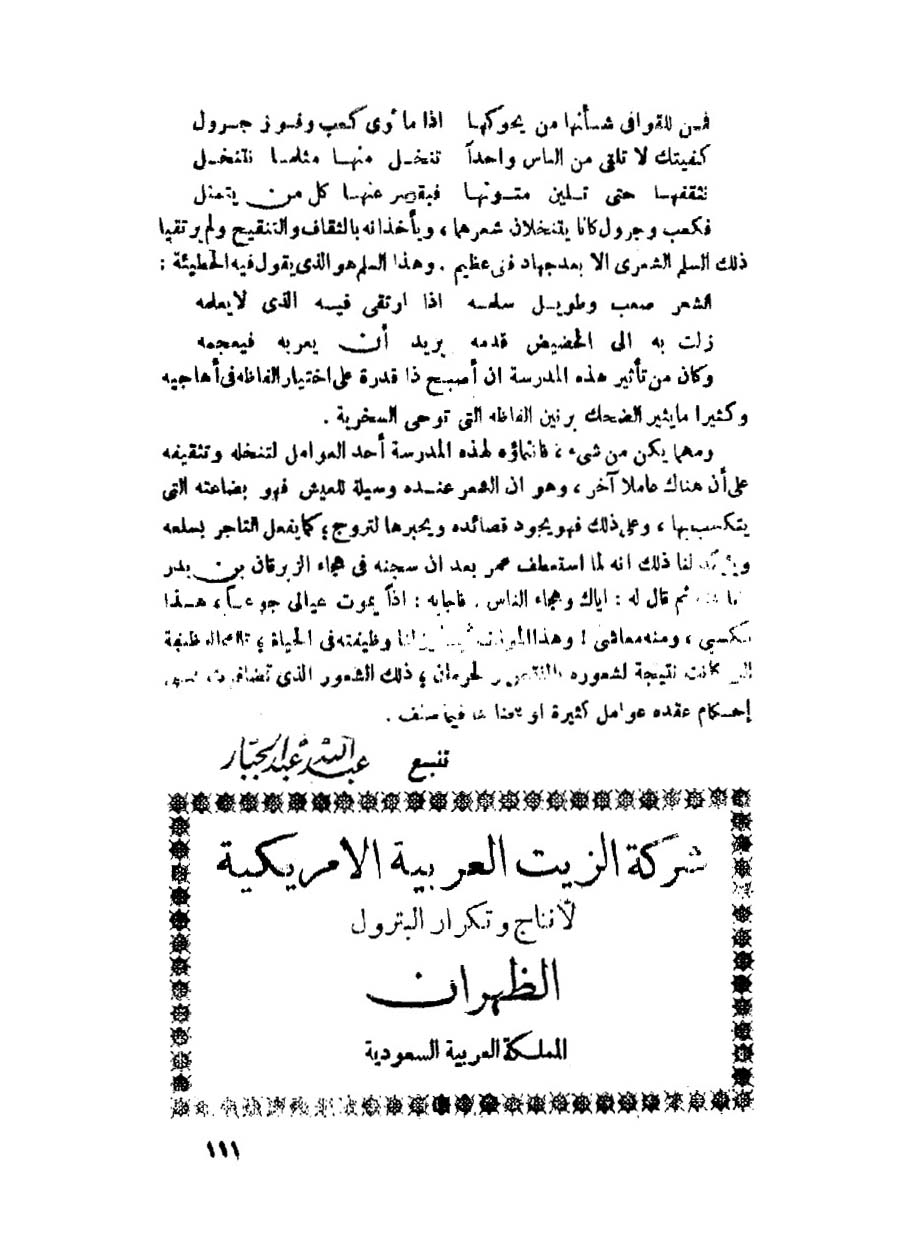 فمن للقوافى شأنها من يحوكها اذا ما ثوى كعب وفوز جرول
كفيتك لا تلقى من الناس واحداً تنخل منها مثلما نتنخل
نثقفها حتى تلين متونها فيقصر عنها كل من يتمثل
فكعب وجرول كانا يتنخلان شعرهما ، ويأخذانه بالثقاف والتنقيح ولم يرتقيا
ذلك السلم الشعرى الا بعد جهاد فنى عظيم . وهذا السلم هو الذى يقول فيه الحطيئة :
الشعر صعب وطويل سلمه اذا ارتقى فيه الذى لا يعلمه
زلت به الى الحضيض قدمه يريد أن يعربه فيعجمه
وكان من تأثير هذه المدرسة ان أصبح ذا قدرة على اختيار الفاظه فى أهاجيه
وكثيرا ما يثير الضحك برنين الفاظه التى توحى السخرية .
ومهما يكن من شىء ، فانتماؤه لهذه المدرسة أحد العوامل لتنخله وتثقيفه
على أن هناك عاملا آخر ، وهو ان الشعر عنده وسيلة للعيش فهو بضاعته التى
يتكسب بها ، وعلى ذلك فهو يجود قصائده ويحبرها لتروج ؛ كما يفعل التاجر بسلعه
ويؤكد لنا ذلك انه لما استعطف عمر بعد ان سجنه فى هجاء الزبرقان بن بدر
ثم قال له : اياك وهجاء الناس . فاجابه : اذاً يموت عيالى جوعاً ، هذا
مكسبى ، ومنه معاشى ! وهذا لنا وظيفته فى الحياة ؛
كانت نتيجة لشعوره لحرمان ؛ ذلك الشعور الذى تضافرت
إحكام عقده عوامل كثيرة فيما سلف .
تتبع عبد الله عبد الجبار
شركة الزيت العربية الامريكية
لأنتاج وتكرار البترول
الظهران
المملكة العربية السعودية
١١١